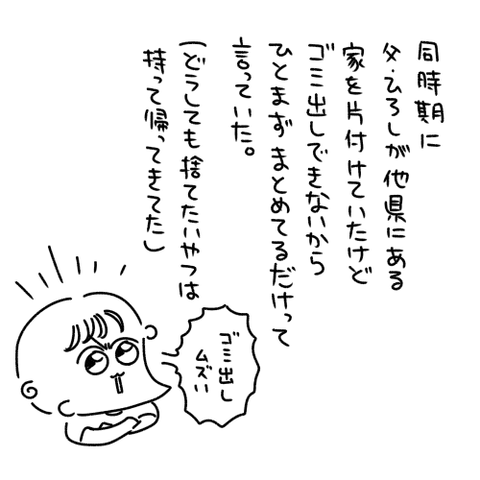 同時期に
父・ひろしが他県にある
家を片付けていたけど
ゴミ出しできないから
ひとまずまとめてるだけって
言っていた。
(どうしても捨てたいやつは
持って帰ってきてた)
ゴミ出し
ムズい